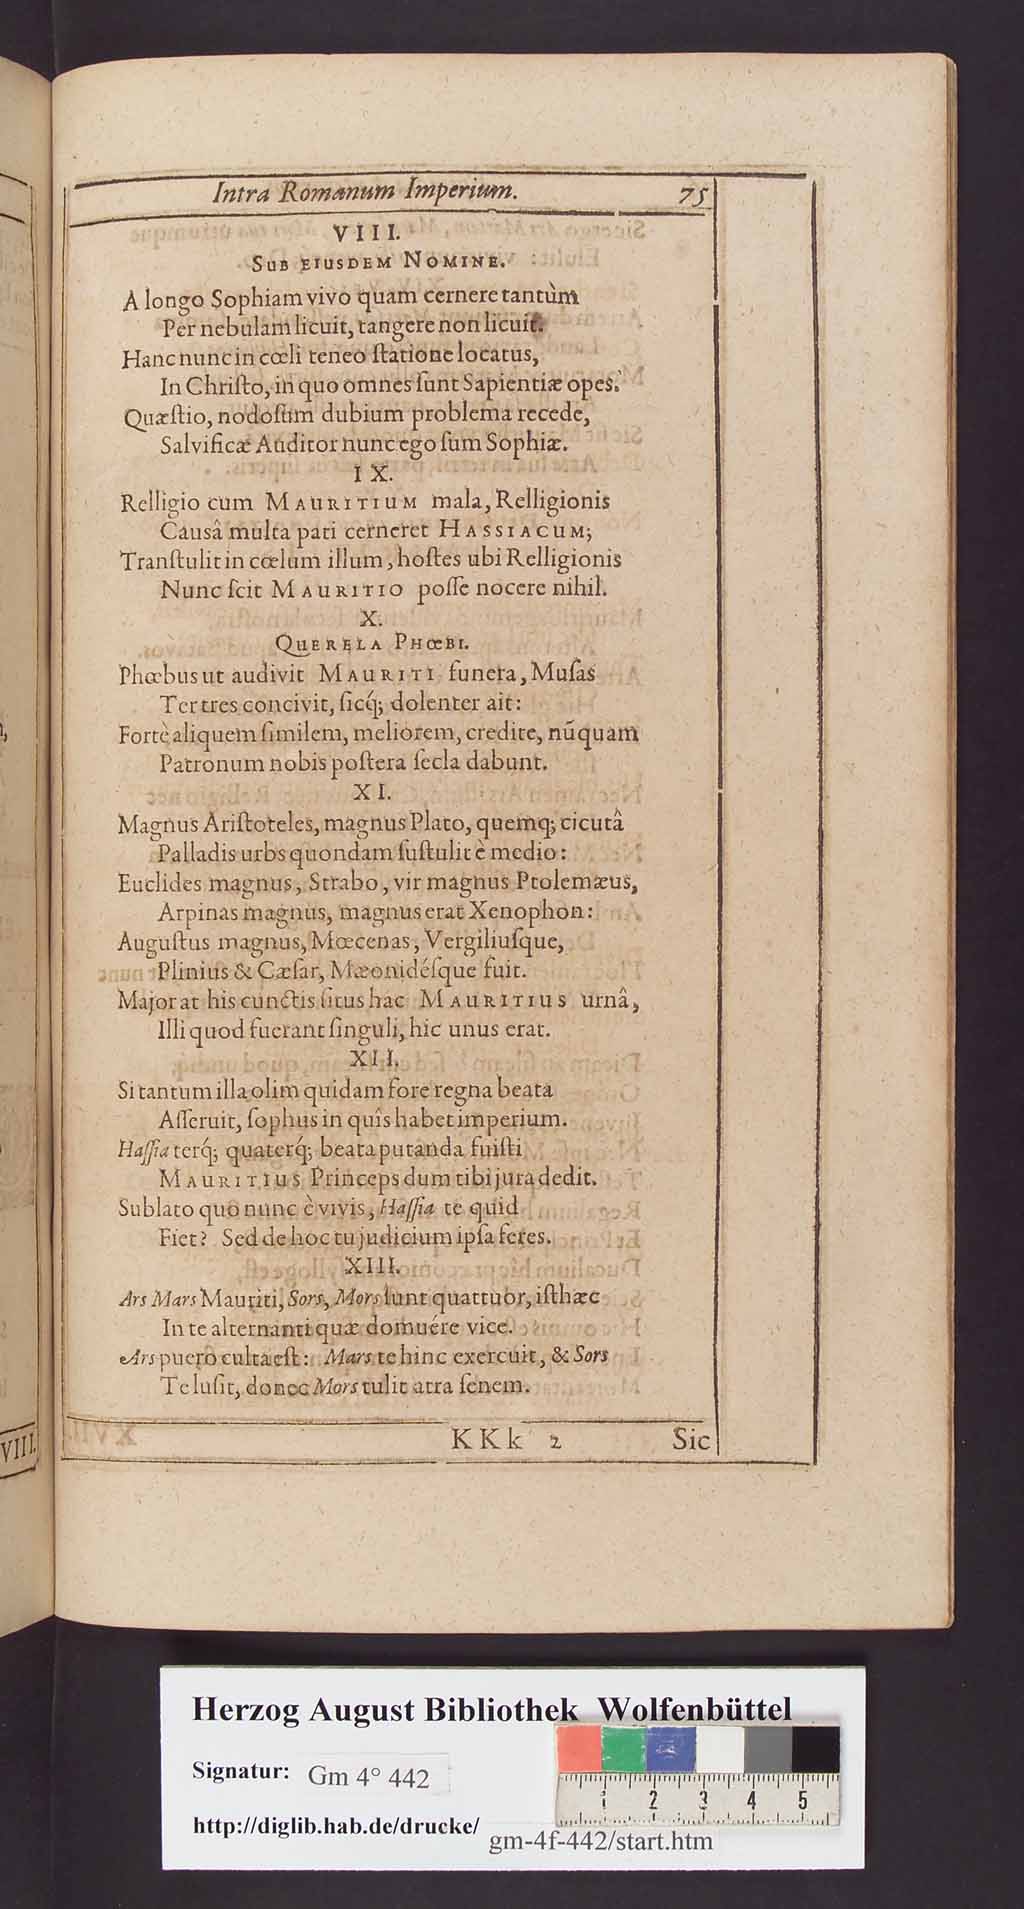 Intra Romanum Imperium. 75
VIII.
SUB EIUSDEM NOMINE.
A longo Sophiam vivo quam cernere tantùm
Per nebulam licuit, tangere non licuit.
Hanc nunc in cœli teneo ſtatione locatus,
In Chriſto, in quo omnes ſunt Sapientiæ opes.
Quæſtio, nodoſum dubium problema recede,
Salvificæ Auditor nunc ego ſum Sophiæ.
IX.
Relligio cum MAURITIUM mala, Relligionis
Causâ multa pati cerneret HASSIACUM;
Tranſtulit in cœlum illum, hoſtes ubi Relligionis
Nunc ſcit MAURITIO poſſe nocere nihil.
X.
QUERELA PHŒBI.
Phœbus ut audivit MAURITI funera, Muſas
Ter tres concivit, ſicq́; dolenter ait:
Fortè aliquem ſimilem, meliorem, credite, nũquam
Patronum nobis poſtera ſecla dabunt.
XI.
Magnus Ariſtoteles, magnus Plato, quemq; cicutâ
Palladis urbs quondam ſuſtulit è medio:
Euclides magnus, Strabo, vir magnus Ptolemæus,
Arpinas magnus, magnus erat Xenophon:
Auguſtus magnus, Mœcenas, Vergiliuſque,
Plinius & Cæſar, Mæonidéſque fuit.
Major at his cunctis ſitus hac MAURITIUS urnâ,
Illi quod fuerant ſinguli, hic unus erat.
XII.
Si tantum illa olim quidam fore regna beata
Aſſeruit, ſophus in quîs habet imperium.
Haſſia terq́; quaterq́; beata putanda fuiſti
MAURITIUS Princeps dum tibi jura dedit.
Sublato quo nunc è vivis, Haſſia te quid
Fiet? Sed de hoc tu judicium ipſa feres.
XIII.
Ars Mars Mauriti, Sors, Mors ſunt quattuor, iſthæc
In te alternanti quæ domuére vice.
Ars puero culta eſt: Mars te hinc exercuit, & Sors
Te luſit, donec Mors tulit atra ſenem.
KKk 2 Sic
VIII.
Herzog August Bibliothek Wolfenbüttel
Signatur: Gm 4° 442
1 2 3 4 5
http://diglib.hab.de/drucke/ gm-4f-442/start.htm